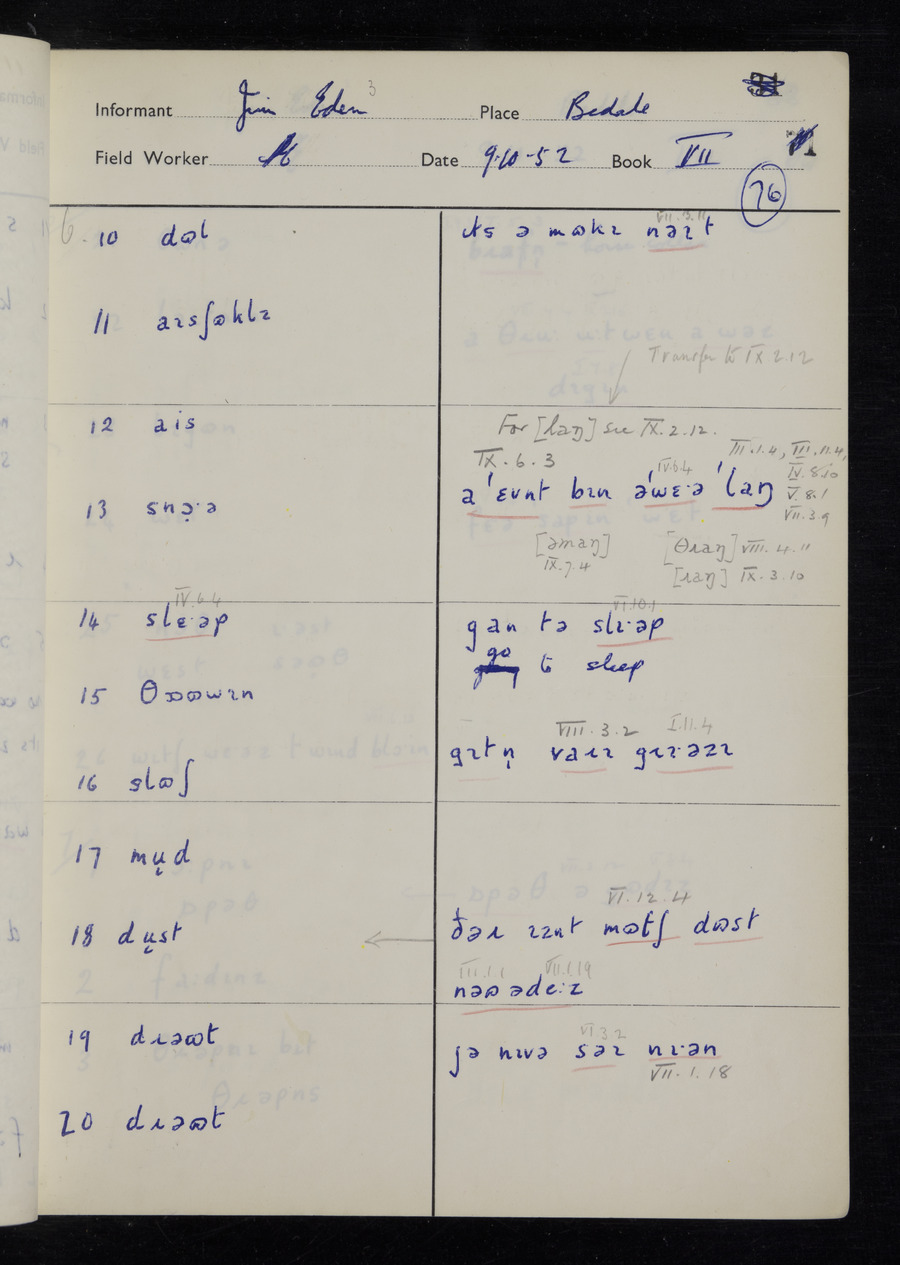 Informant Jim Eden 3 Place Bedale
Field Worker Date 9·10·52 Book VII
76
6. 10 dɷl
VII.3.11
ɩts ə mɷkɪ nəɪt
11 aɪsʃɷklɪ
Transfer to IX 2.12
12 ais
For [laŋ] see IX.2.12.
IX.6.3
IV.6.4
III.1.4, III.11.4,
IV.8.10
V.8.1
VII.3.9
13 snɔ̣·ə
a ˈɛvnt bɪn əˈwɛ·ə ˈlaŋ
[əmaŋ] IX.7.4
[θɹaŋ] VIII.4.11
[ɹaŋ] IX.3.10
IV.6.4
14 slɛ·əp
VI.10.1
gan tə slɪ·əp
go to sleep
15 θɔɷwɪn
VIII.3.2 I.11.4
gɪtn̩ vaɹɪ gɹɪ·əzɪ
16 slɷʃ
17 mu̜d
VI.12.4
18 du̜st
ðəɹ ɪznt mɷtʃ dɷst
III.1.1 VII.1.19
nəɷədɛ:ɪ
19 dɹəɷt
VI 3 2
jə nɪvə səɪ nɪ·ən
VII.1.18
20 dɹəɷt